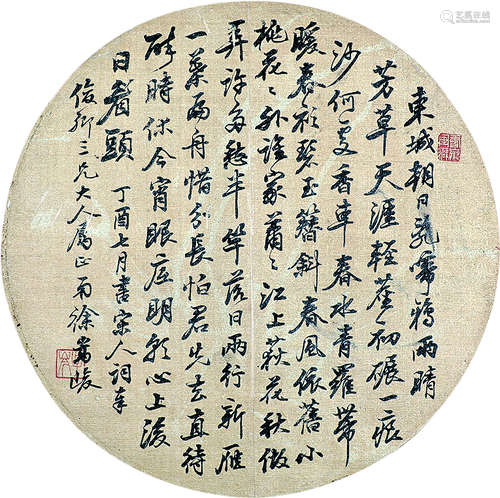 東城朝日亂啼鴉雨晴
芳草天涯輕塵初碾一痕
沙何處香車春水青羅帶
暖春衫碧玉簪斜春風依舊小
桃花〻外誰家蕭〻江上荻花秋做
弄許多愁半竿落日兩行新雁
一葉扁舟惜分長怕君先去直待
醉時休今宵眼底明朝心上後
日眉頭 丁酉七月書宋人詞奉
俊卿三兄大人屬正 徐